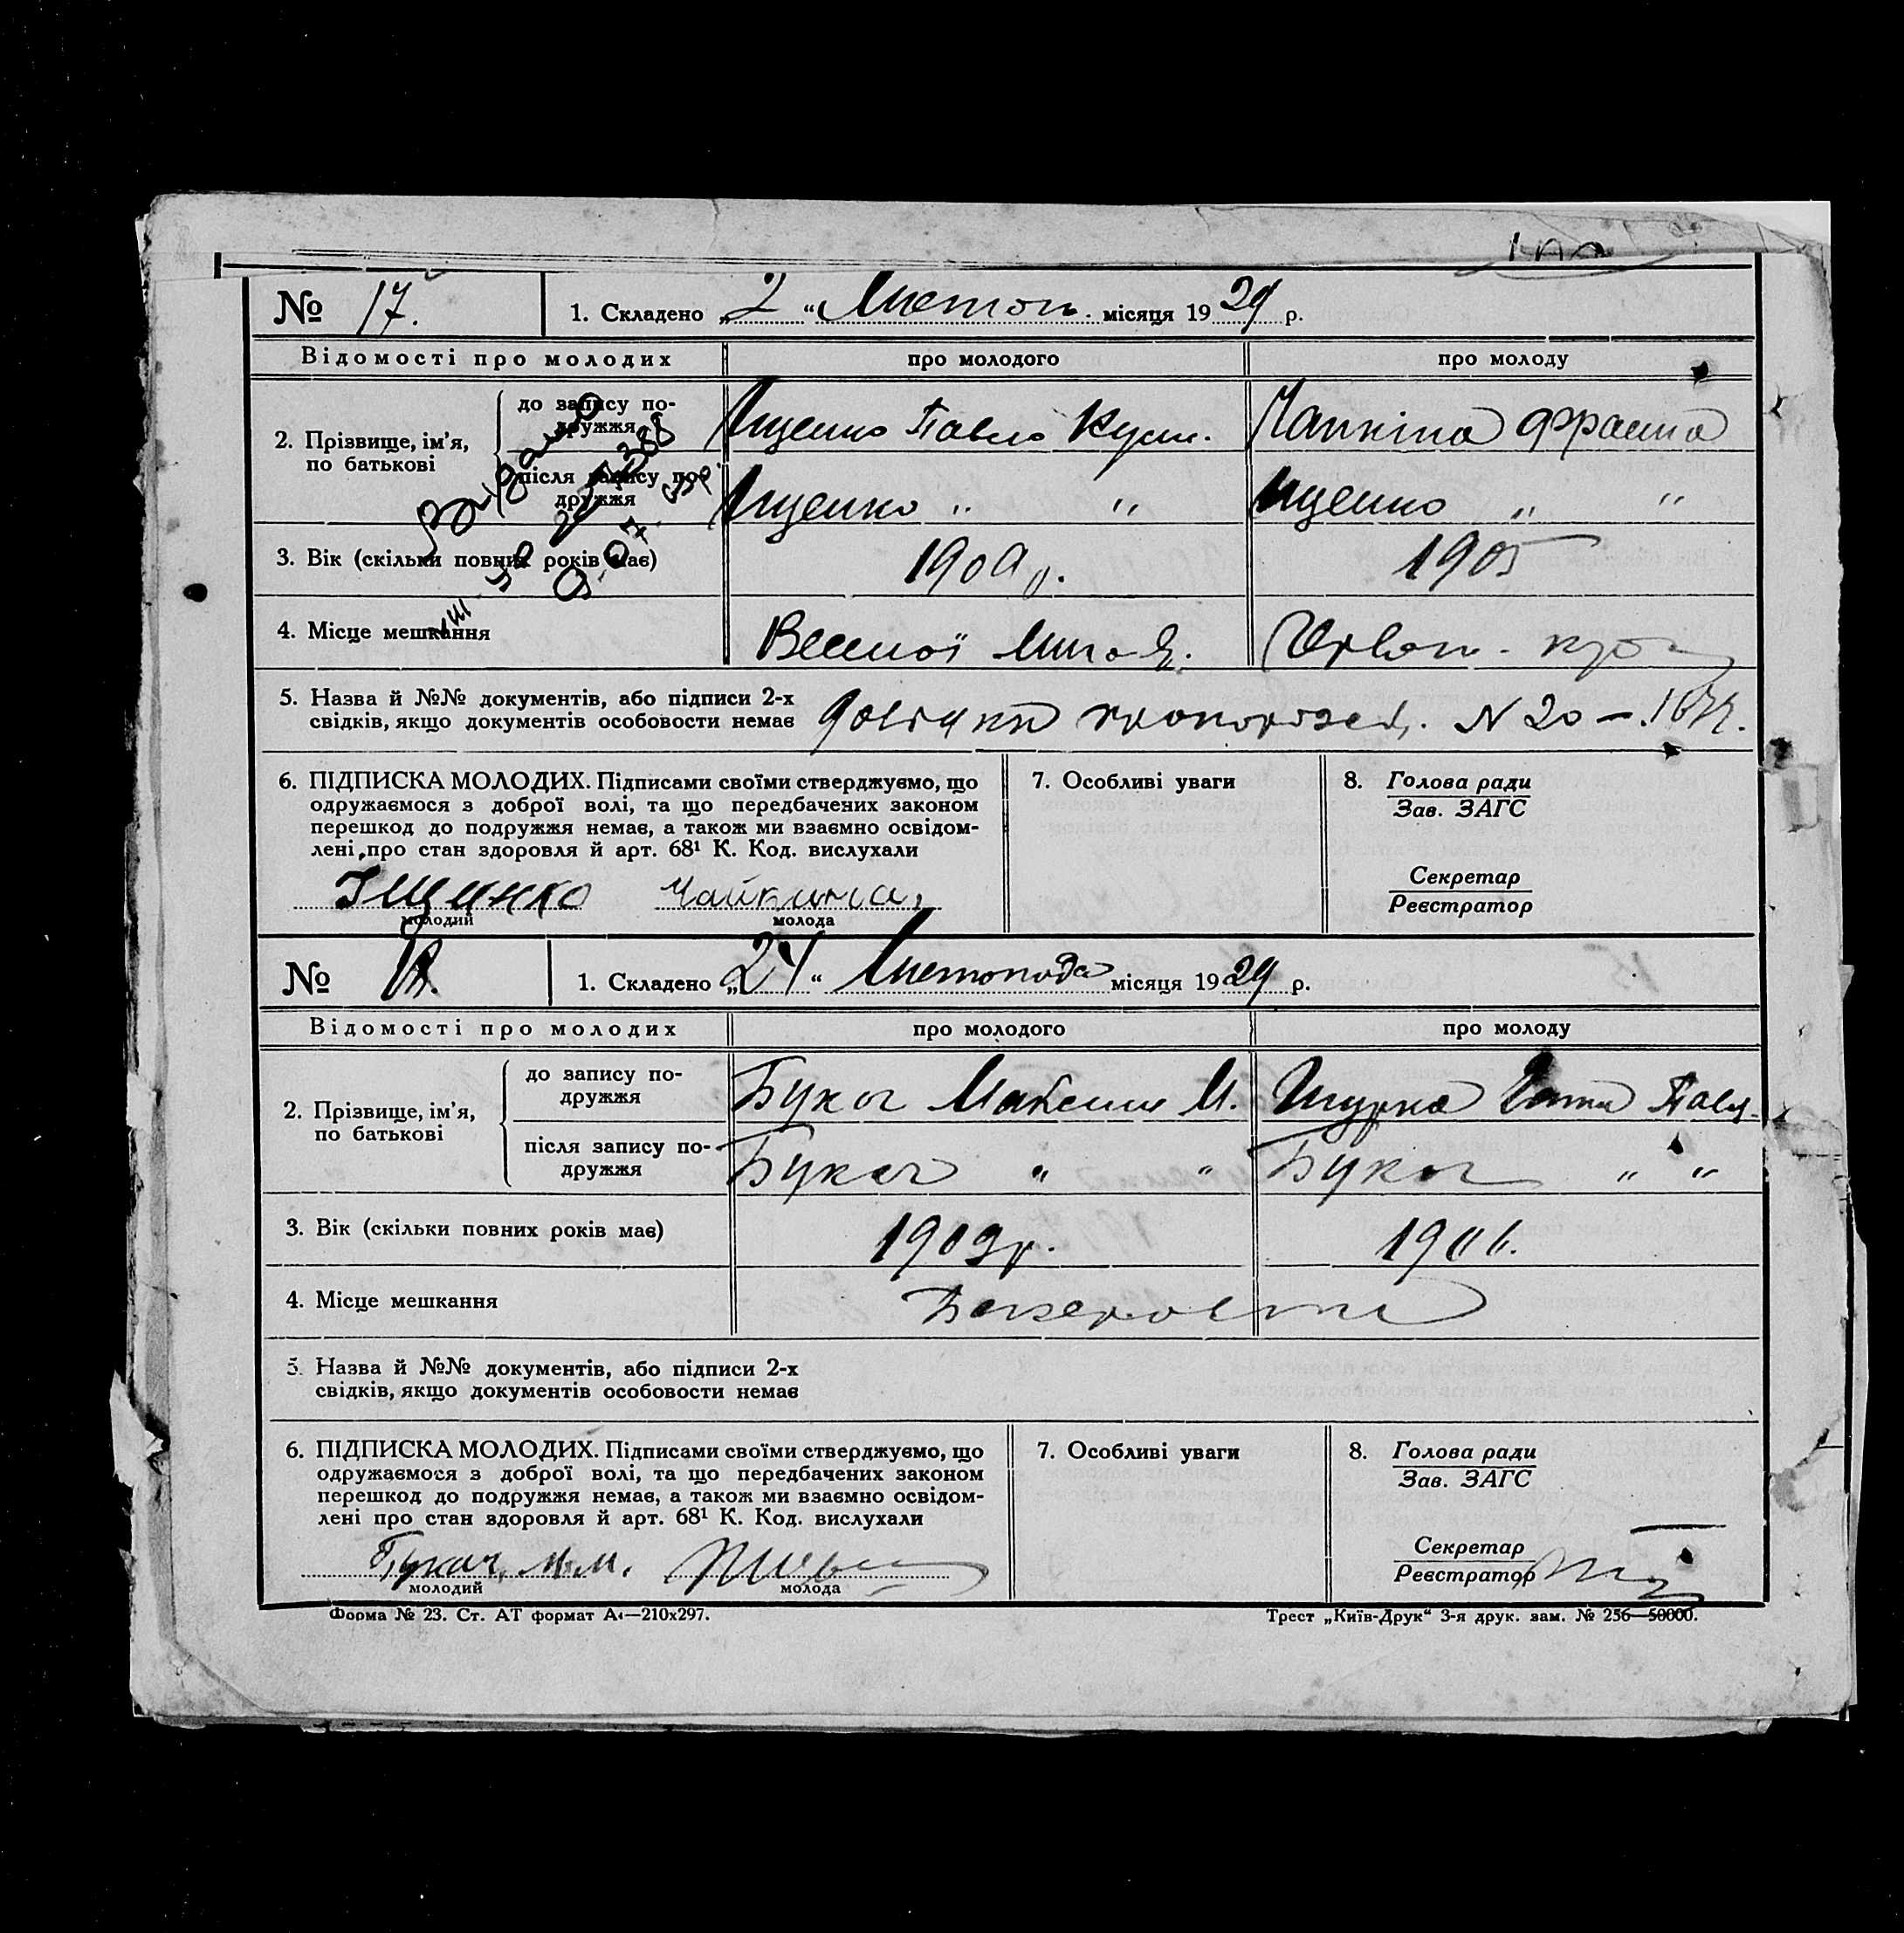 № 17. 1. Складено „2“ Листоп. місяця 1929 р.
Відомості про молодих про молодого про молоду
2. Прізвище, ім'я, по батькові
до запису по-
дружжя
Ищенко Павло Кузм. Чайкіна
після запису по-
дружжя
Ищенко „ „ Ищенко „ „
3. Вік (скільки повних років має) 1909 р. 1905
4. Місце мешкання
5. Назва й №№ документів, або підписи 2-х
свідків, якщо документів особовости немає
N 20
6. ПІДПИСКА МОЛОДИХ. Підписами своїми стверджуємо, що
одружаємося з доброї волі, та що передбачених законом
перешкод до подружжя немає, а також ми взаємно освідом-
лені про стан здоровля й арт. 68¹ К. Код. вислухали
Іщинко Чайкина
молодий молода
7. Особливі уваги
8. Голова ради
Зав. ЗАГС
Секретар
Реєстратор
№ 1. Складено „24“ Листопада місяця 1929 р.
Відомості про молодих про молодого про молоду
2. Прізвище, ім'я, по батькові
до запису по-
дружжя
Букач Максим М. Шурка Павл.
після запису по-
дружжя
Букач „ „ Букач „ „
3. Вік (скільки повних років має) 1909 р. 1906.
4. Місце мешкання
5. Назва й №№ документів, або підписи 2-х
свідків, якщо документів особовости немає
6. ПІДПИСКА МОЛОДИХ. Підписами своїми стверджуємо, що
одружаємося з доброї волі, та що передбачених законом
перешкод до подружжя немає, а також ми взаємно освідом-
лені про стан здоровля й арт. 68¹ К. Код. вислухали
Букач М.М.
молодий молода
7. Особливі уваги
8. Голова ради
Зав. ЗАГС
Секретар
Реєстратор
Форма № 23. Ст. АТ формат А4—210х297.
Трест „Київ-Друк“ 3-я друк. зам. № 256—50000.